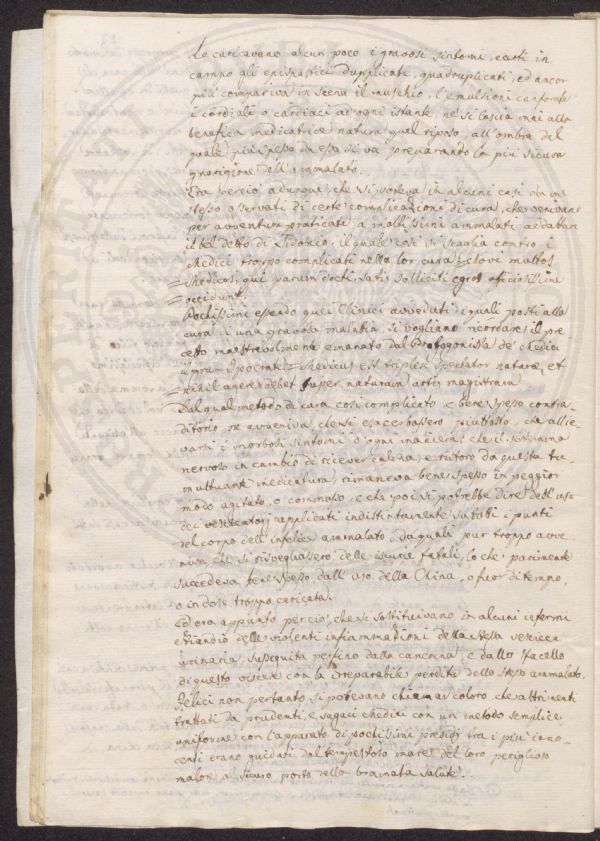 Se caricavano alcun poco i gravosi sintomi, ecoti in
campo gli epispastici dupplicati, quadruplicati, ed ancor
più compariva in scena il muschio, l'emulsioni canforate
i cordiali o cardiaci ad ogni istante, ne si lascia mai alla
benefica medicatrice natura quel riposo, all'ombra del
quale più spesso da essa si va preparando la più sicura
guarigione dell'ammalato.
Era perciò adunque, che si poteva in alcuni casi da me
stesso osservati di certe complicazioni di cura, che venivano
per avventura praticati a moltissimi ammalati addattare
il bel detto di Sidonio, il quale così si scaglia contro i
Medici troppo complicati nella lor cura: e love multos
Medicos, qui parum docti, satis solliciti egros officiosissime
occidunt.
Pochissimi essendo queli Clinici avveduti, i quali posti alla
cura di una gravosa malattia si vogliano ricordare il pre
cetto maestrevolmente emanato dal Protagonista de' Medici
il gran Ipocrate = Medicus est triplex spectator naturæ, et
nihil agere debet super naturam artis magistram.
Dal qual metodo di cura così complicato e bene spesso contra-
ditorio, ne avveniva, che si esacerbassero piuttosto, che allie-
varsi i morbosi sintomi d'ogni maniera, che il sistema
nervoso in cambio di ricever calma, e ristoro da questa tu-
multuante medicatura, rimaneva bene spesso in peggior
modo agitato, o commosso, e che poi si potrebbe dire dell'uso
dei vescicatorj applicati indistintamente su tutti i punti
del corpo dell'infelice ammalato, da quali pur troppo avve
niva, che si risvegliassero delle iscurie fatali, lo che parimente
succedeva bene spesso dall'uso della China, o fuor di tempo,
o in dose troppo caricata.
Ed era appunto perciò, che si sostituivano in alcuni infermi
eziandio delle violenti infiammazioni della stessa vescica
urinaria, susseguita perfino dalla cancrena, e dallo sfacello
di questo viscere con la irreparabile perdita dello stesso ammalato.
Felici non pertanto si potevano chiamar coloro, che altrimenti
trattati da prudenti, e sagaci Medici con un metodo semplice
uniforme con l'apparato di pochissimi presidj tra i più inno-
centi erano guidati dal tempestoso mare del loro periglioso
malore al sicuro porto della bramata salute.